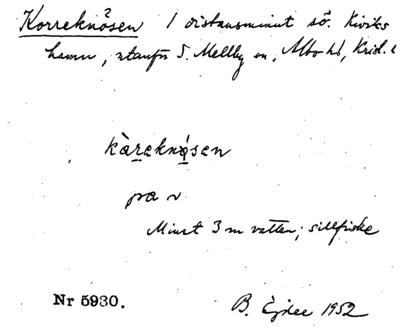 Korreknösen 1 distansminut sö. Kiviks
hamn, utanför S. Mellby sn, Albo hd, Krist. l
kàreknǿsen
på v
Minst 3 m vatten; sillfiske
Nr 5930. B. Ejder 1952